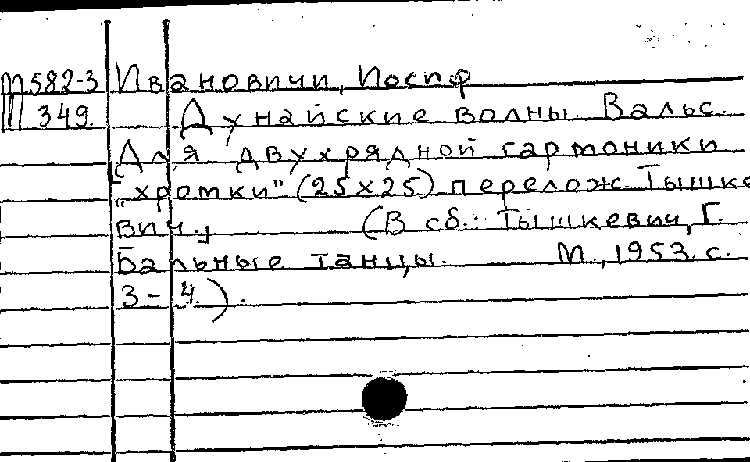 М582-3 Ивановичи, Иосиф
III 349. Дунайские волны Вальс.
Для двухрядной гармоники
"хромки" (25х25) перелож. Тышке
вич. (В сб.: Тышкевич, Г.
Бальные танцы. М., 1953. с.
3-4.).